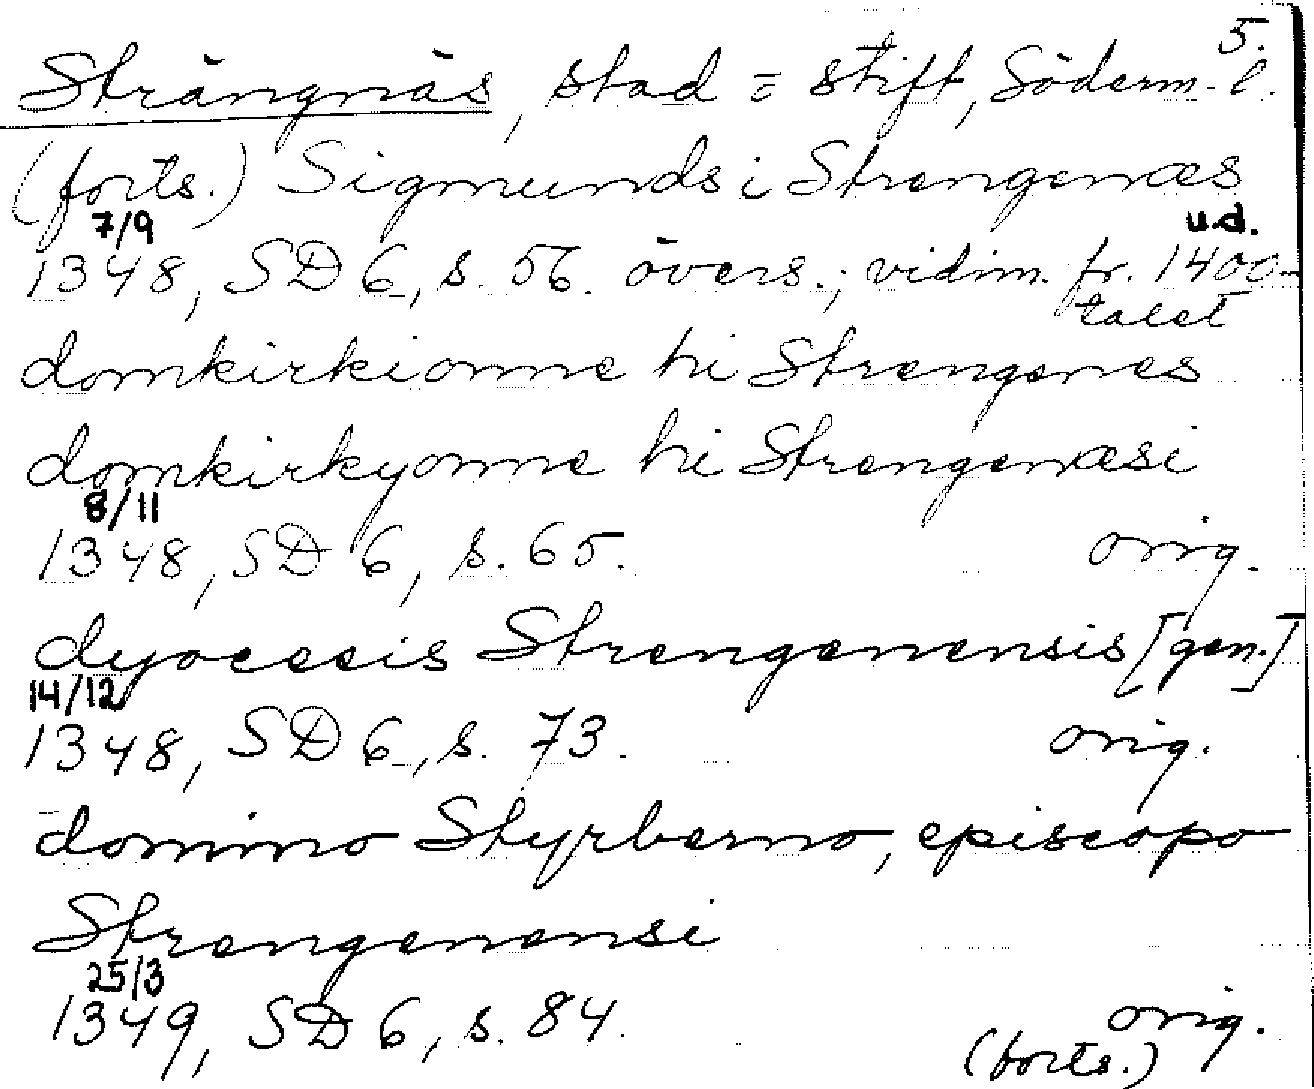 5.
Strängnäs, stad = stift, Söderm. l.
(forts.) Sigmunds i Strengenæs
7/9 u.d.
1348, SD 6, s. 56. övers.; vidim. fr. 1400-
talet
domkirkionne hi Strengenes
domkirkyonne hi Strengenæsi
8/11
1348, SD 6, s. 65. orig.
dyocesis Strengenensis [gen.]
14/12
1348, SD 6, s. 73. orig.
domino Styrberno, episcopo
Strengenensi
25/3
1349, SD 6, s. 84. orig.
(forts.)